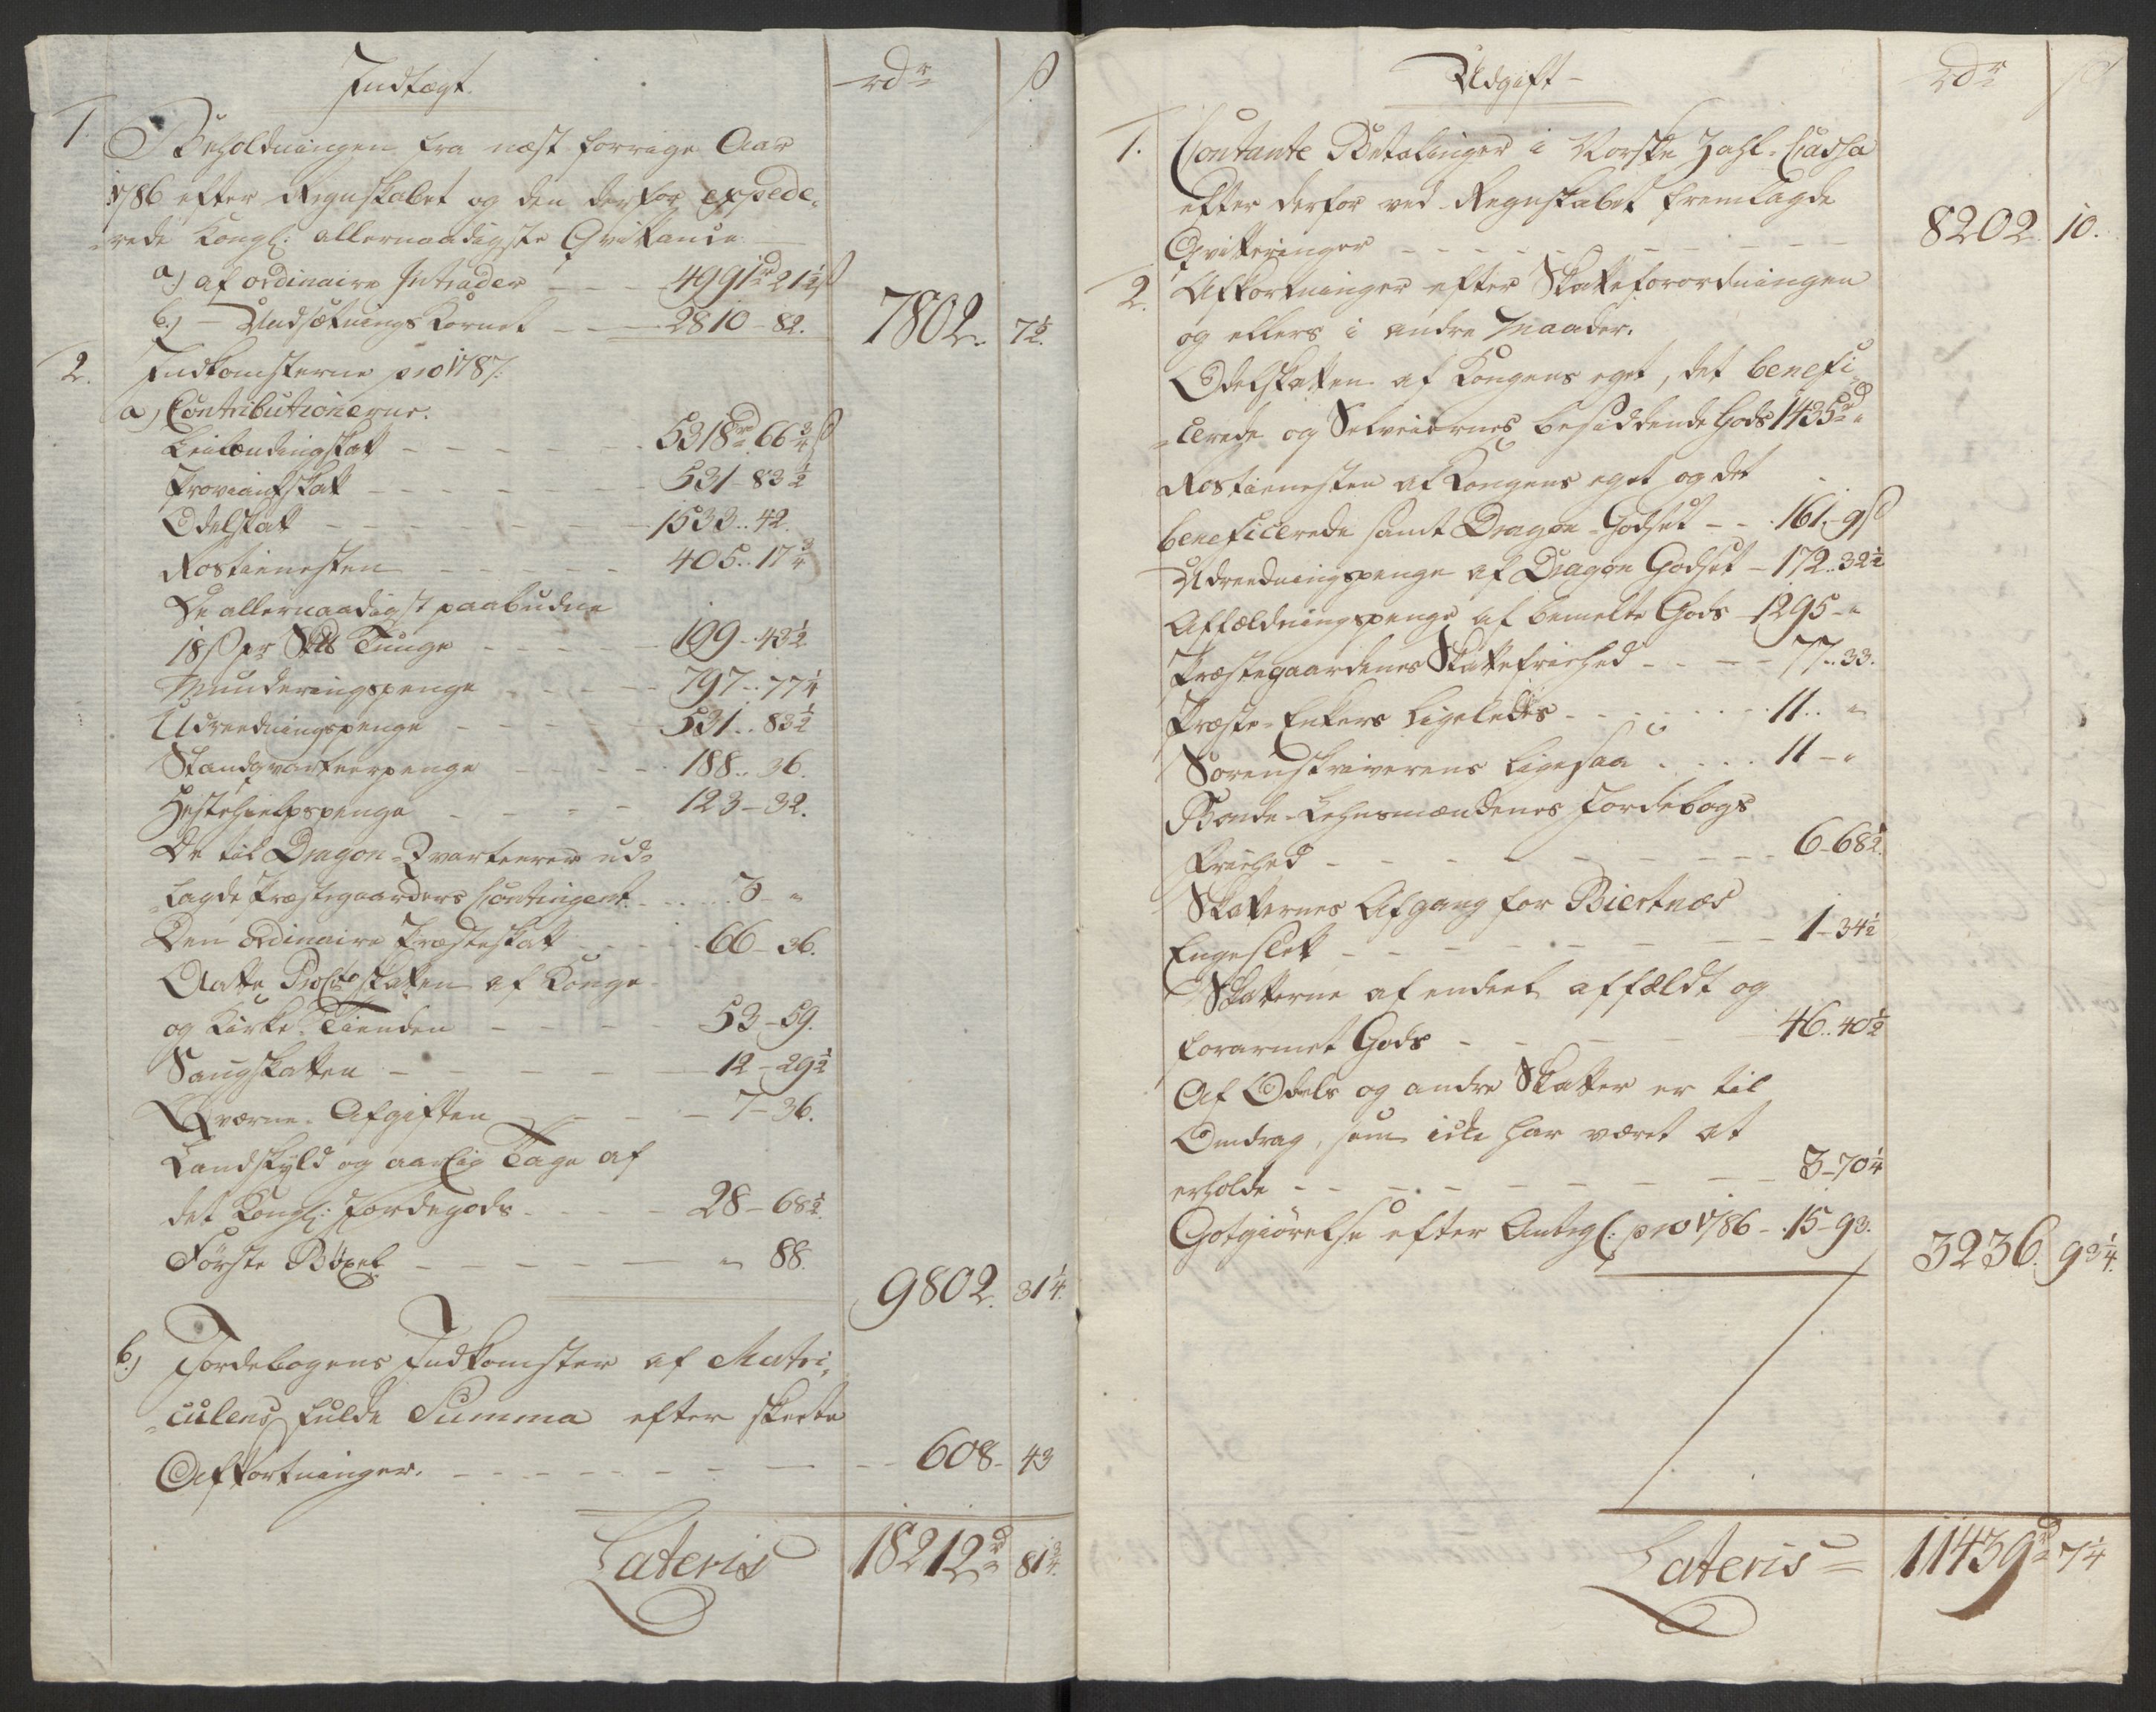 Indtægt. rdr ß
1. Beholdningen fra næst forrige Aar
1786 efter Regnskabet og den derfor expede-
rede Kongl: allernaadigste Qvitance
a) af ordinaire Intrader - - - 4991rd 21½ß
b.) — Undsætnings Kornet - - - 2810 - 82. 7802. 7½.
2. Indkomsterne pro 1787.
a) Contributionerne.
Leilændingskatt - - - - - 5318rd 66¾ß
Proviantskatt - - - - - 531 - 83½
Odelskat - - - - - 1533 .. 42.
Rostienesten - - - - - 405 .. 17¾
De allernaadigst paabudne
18ß pr Skll Tunge - - - - - 199 - 43½
Munderingspenge - - - - 797 .. 77¼
Udreedningspenge - - - - 531 .. 83½
Standqvarteerpenge - - - - 188 .. 36.
Hestehielpspenge - - - - 123 - 32.
De til Dragon-Qvarteerer ud-
lagde Præstegaarders Contingent. - - - 3 - "
Den ordinaire Præsteskat - - - 66 - 36.
Aatte ProCto skatten af Konge-
og Kirke-Tienden - - - - 53 - 59.
Saugskatten - - - - - 12 - 29½
Qværne-Afgiften - - - - 7 - 36.
Landskyld og aarlig Tage af
det Kongl: Jordegods - - - - 28 - 68½.
Første Bøxel - - - - - " 88. 9802. 31¼.
b.) Jordebogens Indkomster af Matri-
culens fulde Summa efter skeete
Afkortninger. - - - - - - - 608. 43
Lateris 18212rd 81¾.
Udgift rdr ß
1. Contante Betalinger i Norske Zahl-Cassa
efter derfor ved Regnskabet fremlagde
Qvitteringer - - - - - - 8202. 10.
2. Afkortninger efter Skatteforordningen
og ellers i andre Maader.
Odelskatten af Kongens eget, det benefi-
cerede og Selveiernes besiddende Gods 1435rd "
Rostienesten af Kongens eget og det
beneficerede samt Dragon-Godset - - 161 - 9ß
Udreedningspenge af Dragon Godset - 172 .. 32½
Affældningspenge af bemelte Gods - 1295 - "
Præstegaardenes Skattefriehed - - - 77 .. 33.
Præste-Enkers ligeledes - - - - 11 .. "
Sorenskriverens ligesaa - - - - 11 - "
Bonde-Lehnsmændenes Jordebogs
friehed - - - - - - - 6 - 68½.
Skatternes Afgang for Biertnæs
Engeslet - - - - - - - 1 - 34½
Skatterne af endeel affældt og
forarmet Gods - - - - - 46 .. 40½
Af Odels og andre Skatter er til
Omdrag, som icke har været at
erholde - - - - - - - 3 - 70¼
Gotgiørelse efter Antegl: pro 1786 - 15 - 93. 3236. 93¼.
Lateris 11439rd 7¼